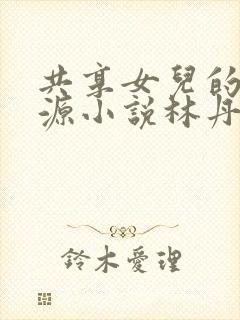 共享女兒的
源小說林丹
鈴木愛理